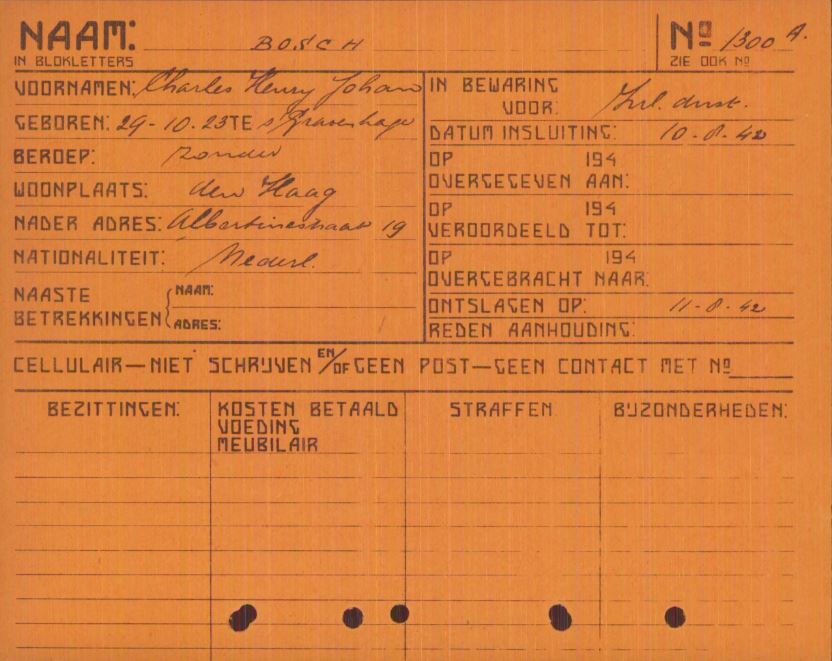 NAAM: BOSCH
IN BLOKLETTERS
Nº 1300 A.
ZIE OOK Nº
VOORNAMEN: Charles Henry Johan
GEBOREN: 29-10-23 TE s' Gravenhage
BEROEP: zonder
WOONPLAATS: den Haag
NADER ADRES: Albertinestraat 19
NATIONALITEIT: Nederl.
NAASTE BETREKKINGEN
NAAM:
ADRES:
IN BEWARING
VOOR:
DATUM INSLUITING: 10-8-42
OP 194
OVERGEGEVEN AAN:
OP 194
VEROORDEELD TOT:
OP 194
OVERGEBRACHT NAAR:
ONTSLAGEN OP: 11-8-42
REDEN AANHOUDING:
CELLULAIR—NIET SCHRIJVEN EN/OF GEEN POST—GEEN CONTACT MET Nº
BEZITTINGEN:
KOSTEN BETAALD
VOEDING
MEUBILAIR
STRAFFEN
BIJZONDERHEDEN: